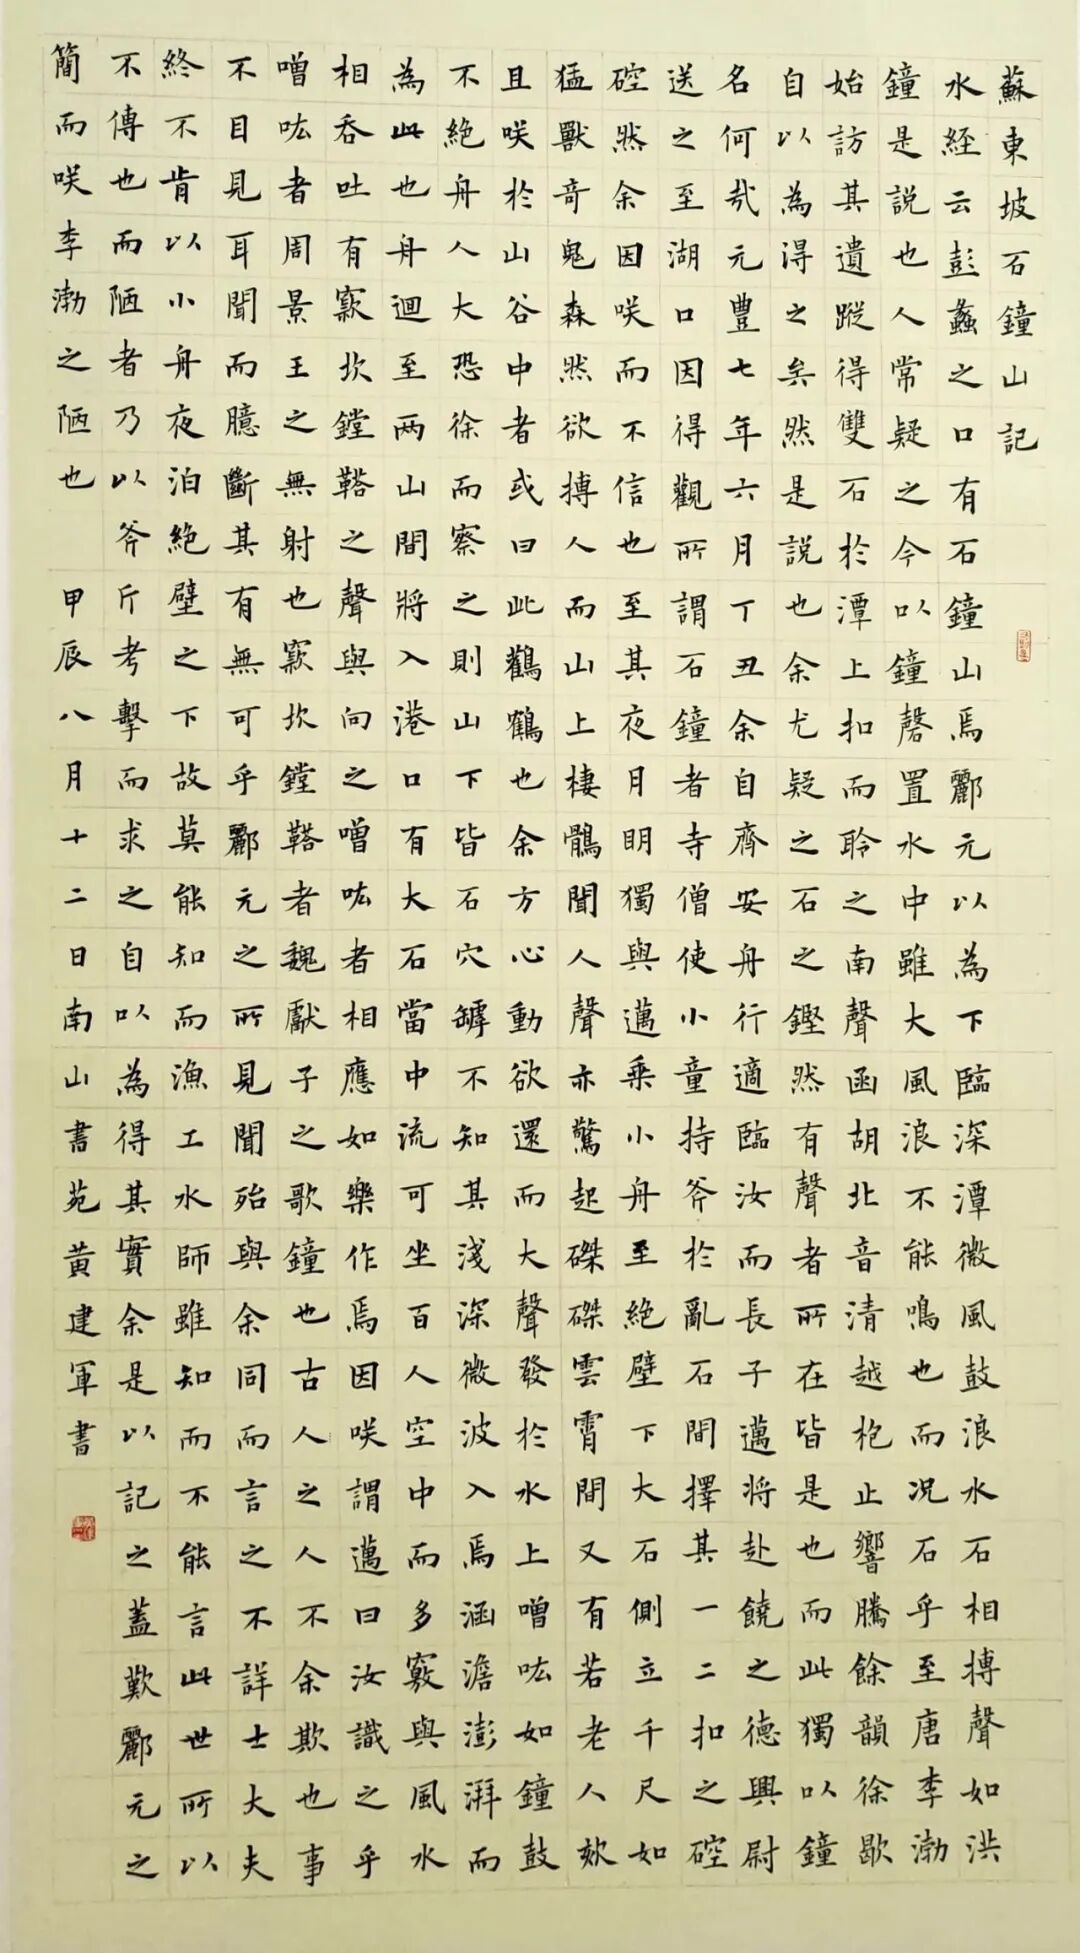 蘇東坡石鐘山記
水経云彭蠡之口有石鐘山焉酈元以為下臨深潭微風鼓浪水石相搏聲如洪
鐘是說也人常疑之今以鐘磬置水中雖大風浪不能鳴也而況石乎至唐李渤
始訪其遺蹤得雙石於潭上扣而聆之南聲函胡北音清越枹止響騰餘韻徐歇
自以為得之矣然是說也余尤疑之石之鏗然有聲者所在皆是也而此獨以鐘
名何哉元豐七年六月丁丑余自齊安舟行適臨汝而長子邁將赴饒之德興尉
送之至湖口因得觀所謂石鐘者寺僧使小童持斧於亂石間擇其一二扣之硿
硿然余因咲而不信也至其夜月明獨與邁乘小舟至絕壁下大石側立千尺如
猛獸奇鬼森然欲搏人而山上棲鶻聞人聲亦驚起磔磔雲霄間又有若老人欬
且咲於山谷中者或曰此鸛鶴也余方心動欲還而大聲發於水上噌吰如鐘鼓
不絕舟人大恐徐而察之則山下皆石穴罅不知其淺深微波入焉涵澹澎湃而
為此也舟迴至兩山間將入港口有大石當中流可坐百人空中而多竅與風水
相吞吐有窾坎鏜鞳之聲與向之噌吰者相應如樂作焉因咲謂邁曰汝識之乎
噌吰者周景王之無射也窾坎鏜鞳者魏獻子之歌鐘也古人之人不余欺也事
不目見耳聞而臆斷其有無可乎酈元之所見聞殆與余同而言之不詳士大夫
終不肯以小舟夜泊絕壁之下故莫能知而漁工水師雖知而不能言此世所以
不傳也而陋者乃以斧斤考擊而求之自以為得其實余是以記之蓋歎酈元之
簡而咲李渤之陋也 甲辰八月十二日南山書苑黃建軍書